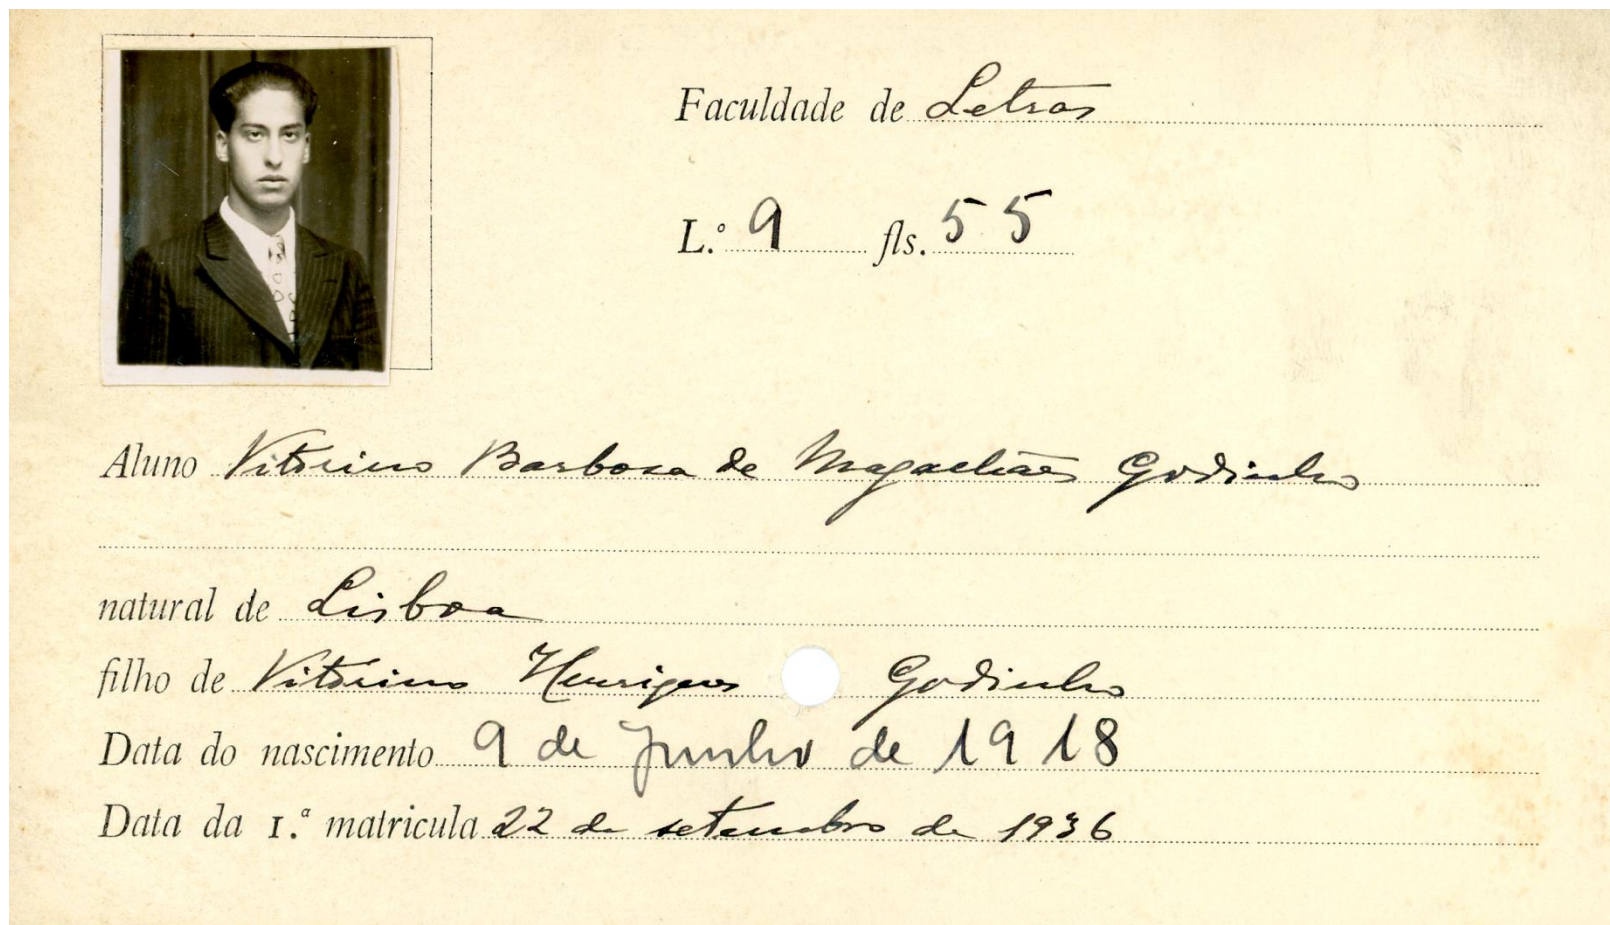 Faculdade de Letras
L.º 9 fls. 55
Aluno Vitorino Barbosa de Magalhães Godinho
natural de Lisboa
filho de Vitorino Henriques Godinho
Data do nascimento 9 de Junho de 1918
Data da 1.ª matricula 22 de setembro de 1936